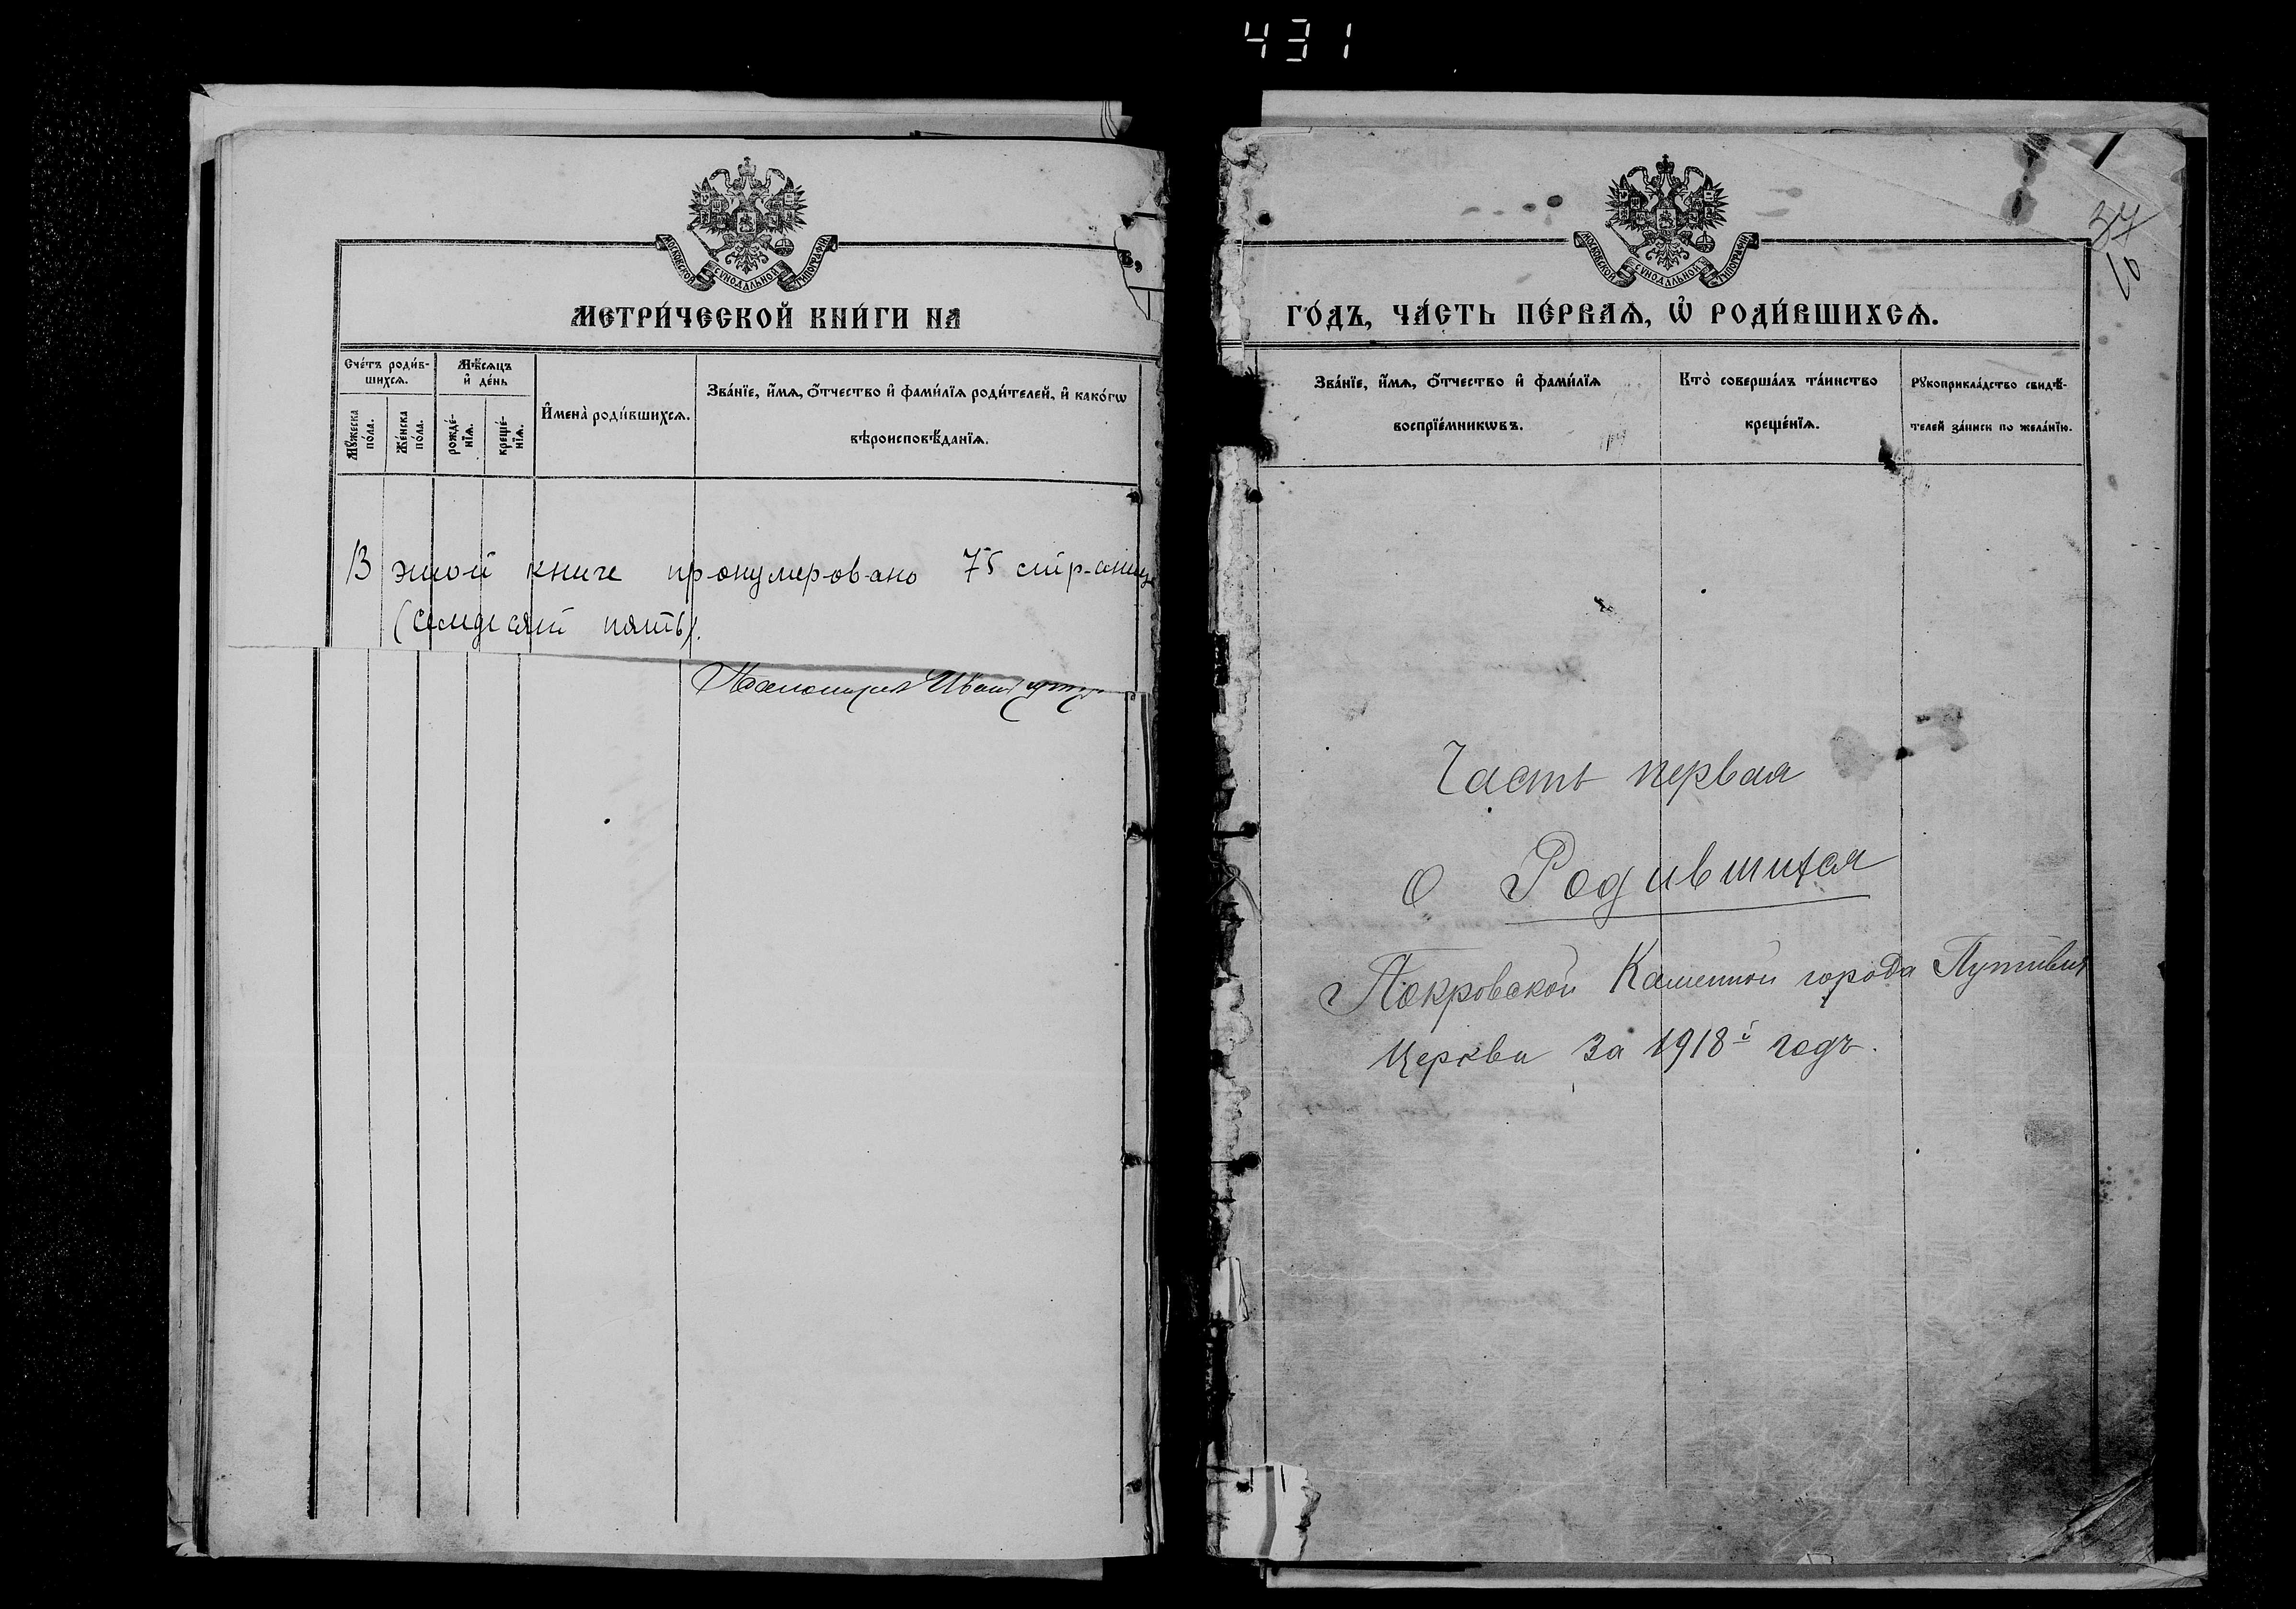 431
МОСКОВСКОЙ СѴНОДАЛЬНОЙ ТИПОГРАФІИ
МЕТРИ́ЧЕСКОЙ КНИ́ГИ НА
Сче́тъ роди́в-
шихсѧ.
Мѣ́сѧцъ
и҆ де́нь
Мꙋ́жеска
по́ла.
Же́нска
по́ла.
рожде́-
нїѧ.
креще́-
нїѧ.
И҆мена̀ роди́вшихсѧ.
Зва́нїе, и҆́мѧ, ѻ҆́тчество и҆ фами́лїѧ роди́телей, и҆ како́гѡ
вѣроисповѣ́данїѧ.
В этой книге пронумеровано 75 страниц
(семдесят пять).
МОСКОВСКОЙ СѴНОДАЛЬНОЙ ТИПОГРАФІИ
37
10
ГО́ДЪ, ЧА́СТЬ ПЕ́РВАѦ, Ѡ҆ РОДИ́ВШИХСѦ.
Зва́нїе, и҆́мѧ, ѻ҆́тчество и҆ фами́лїѧ
воспрїе́мникѡвъ.
Кто̀ соверша́лъ та́инство
креще́нїѧ.
Рꙋкоприкла́дство свидѣ́-
телей за́писи по жела́нїю.
Часть первая
о Родившихся
Покровской Каменной города Путивля
Церкви за 1918й годъ.